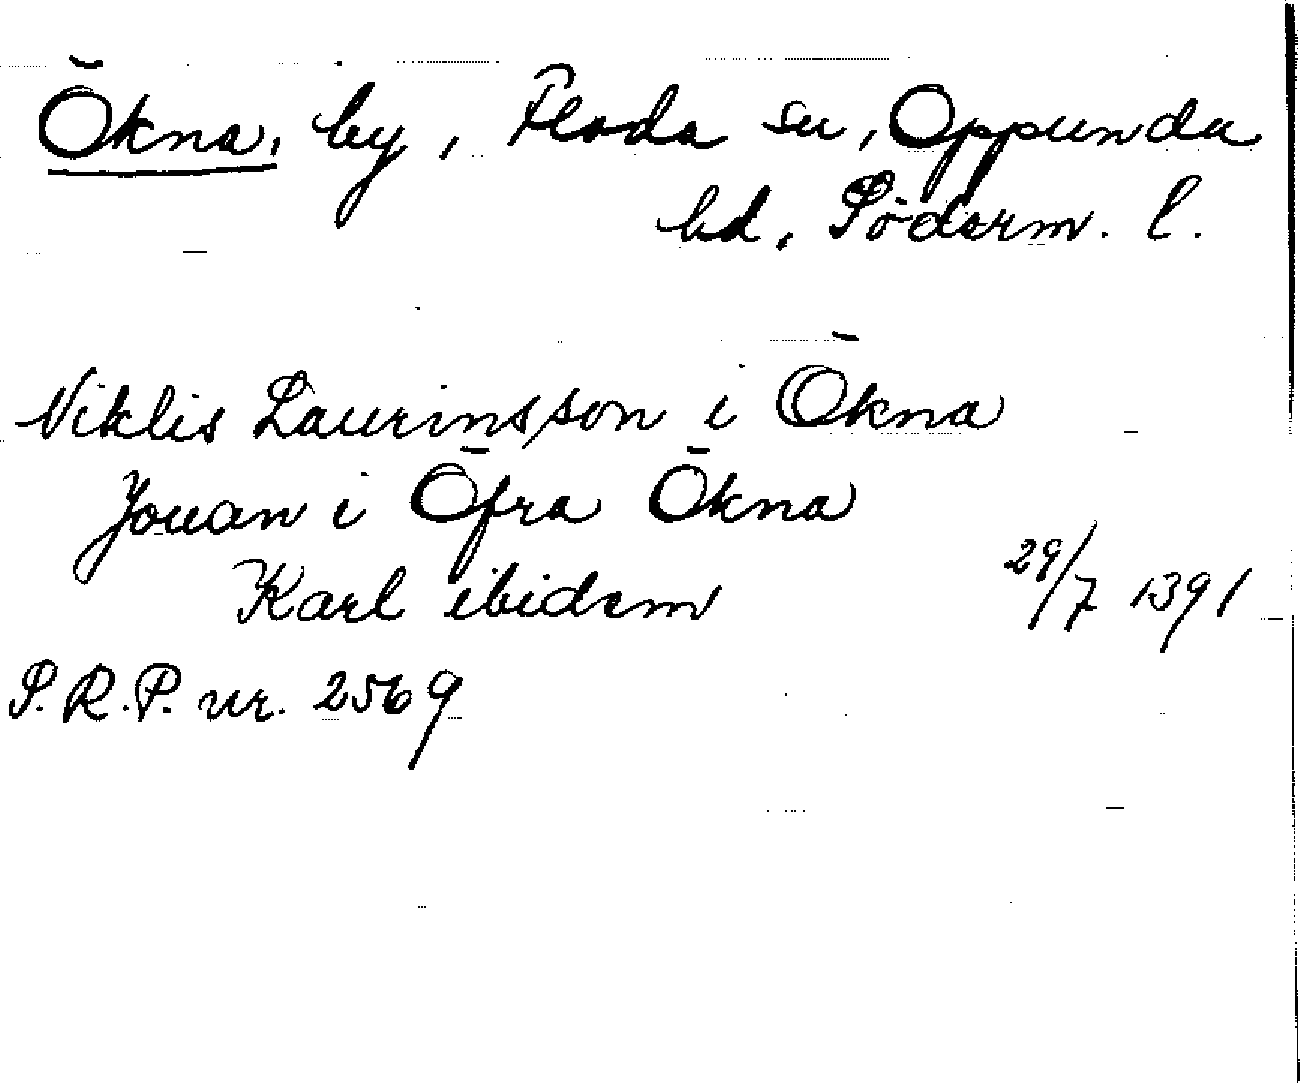 Ökna, by, Floda sn, Oppunda
hd, Söderm. l.
Niklis Laurinsson i Ökna
Jouan i Öfra Ökna
Karl ibidem 29/7 1391
S.R.P. nr. 2569